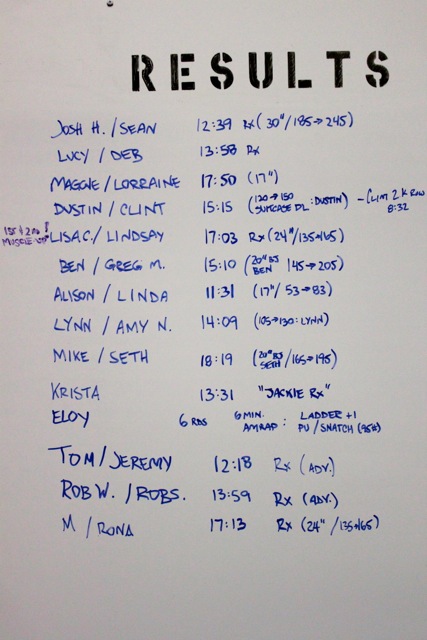 RESULTS
JOSH H. / SEAN 12:39 Rx (30"/185→245)
LUCY / DEB 13:58 Rx
MAGGIE / LORRAINE 17:50 (17")
DUSTIN / CLINT 15:15 (120→150 SUITCASE DL : DUSTIN) - CLINT 2K ROW 8:32
1ST & 2ND MUSCLE UP! LISA C. / LINDSAY 17:03 Rx (24"/135→165)
BEN / GREG M. 15:10 (20" BJ BEN 145→205)
ALISON / LINDA 11:31 (17"/53→83)
LYNN / AMY N. 14:09 (105→130: LYNN)
MIKE / SETH 18:19 (20" BJ SETH /165→195)
KRISTA 13:31 "JACKIE Rx"
ELOY 6 RDS 6 MIN. AMRAP: LADDER +1 PU / SNATCH (95#)
TOM / JEREMY 12:18 Rx (ADV.)
ROB W. / ROB S. 13:59 Rx (ADV.)
M / RONA 17:13 Rx (24"/135→165)